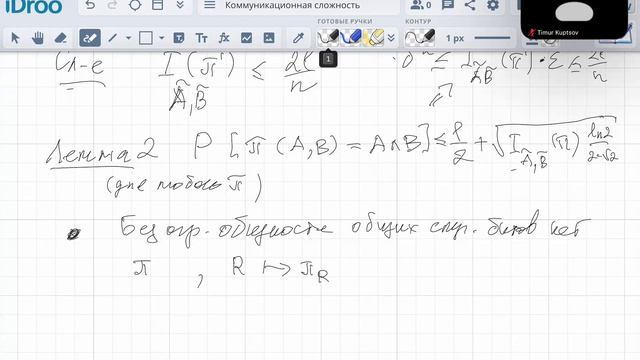 iDroo
Коммуникационная сложность
0
ГОТОВЫЕ РУЧКИ
КОНТУР
1 px
1
Timur Kuptsov
Сл-е I(π') ≤ 2l/n
Ã,B̃
Лемма 2 P[π(A,B) = A∧B] ≤ 1/2 + √(I(π) ln2/2√2)
Ã,B̃
(для любого π)
• Без огр. общности общих случ. битов нет
π , R ↦ π_R